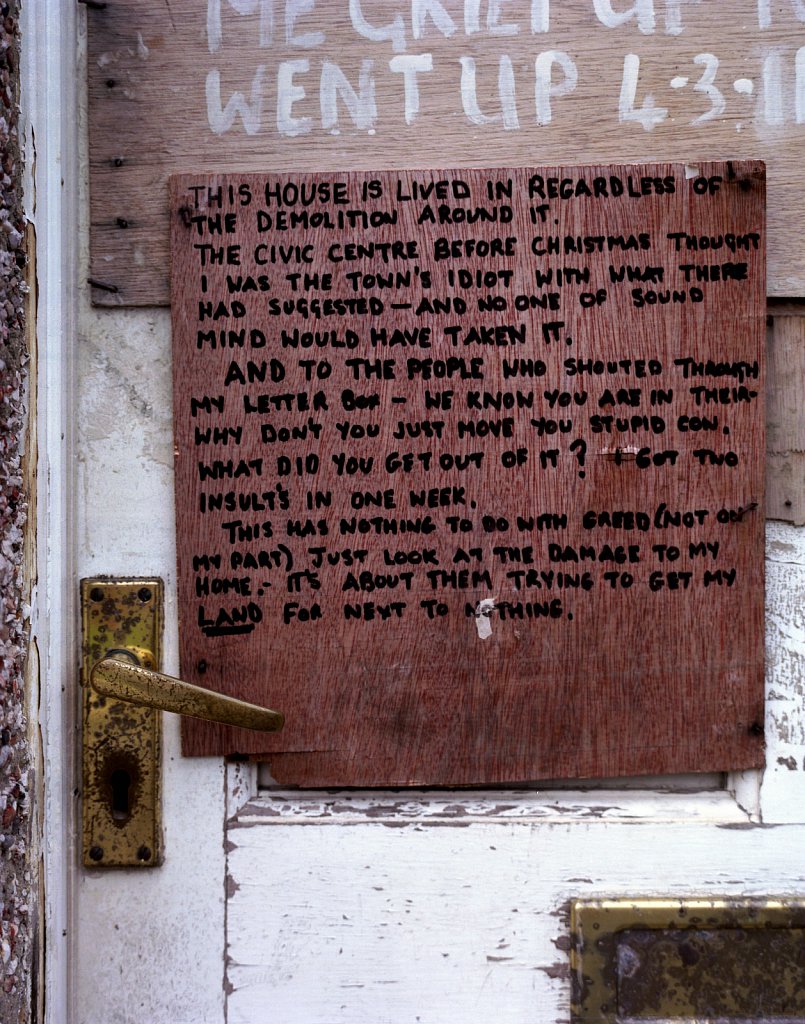 ME GRIEF UP
WENT UP 4.3.11
THIS HOUSE IS LIVED IN REGARDLESS OF
THE DEMOLITION AROUND IT.
THE CIVIC CENTRE BEFORE CHRISTMAS THOUGHT
I WAS THE TOWN'S IDIOT WITH WHAT THERE
HAD SUGGESTED — AND NO ONE OF SOUND
MIND WOULD HAVE TAKEN IT.
AND TO THE PEOPLE WHO SHOUTED THROUGH
MY LETTER BOX — WE KNOW YOU ARE IN THEIR-
WHY DON'T YOU JUST MOVE YOU STUPID COW.
WHAT DID YOU GET OUT OF IT? I GOT TWO
INSULT'S IN ONE WEEK.
THIS HAS NOTHING TO DO WITH GREED (NOT ON
MY PART) JUST LOOK AT THE DAMAGE TO MY
HOME.- IT'S ABOUT THEM TRYING TO GET MY
LAND FOR NEXT TO NOTHING.